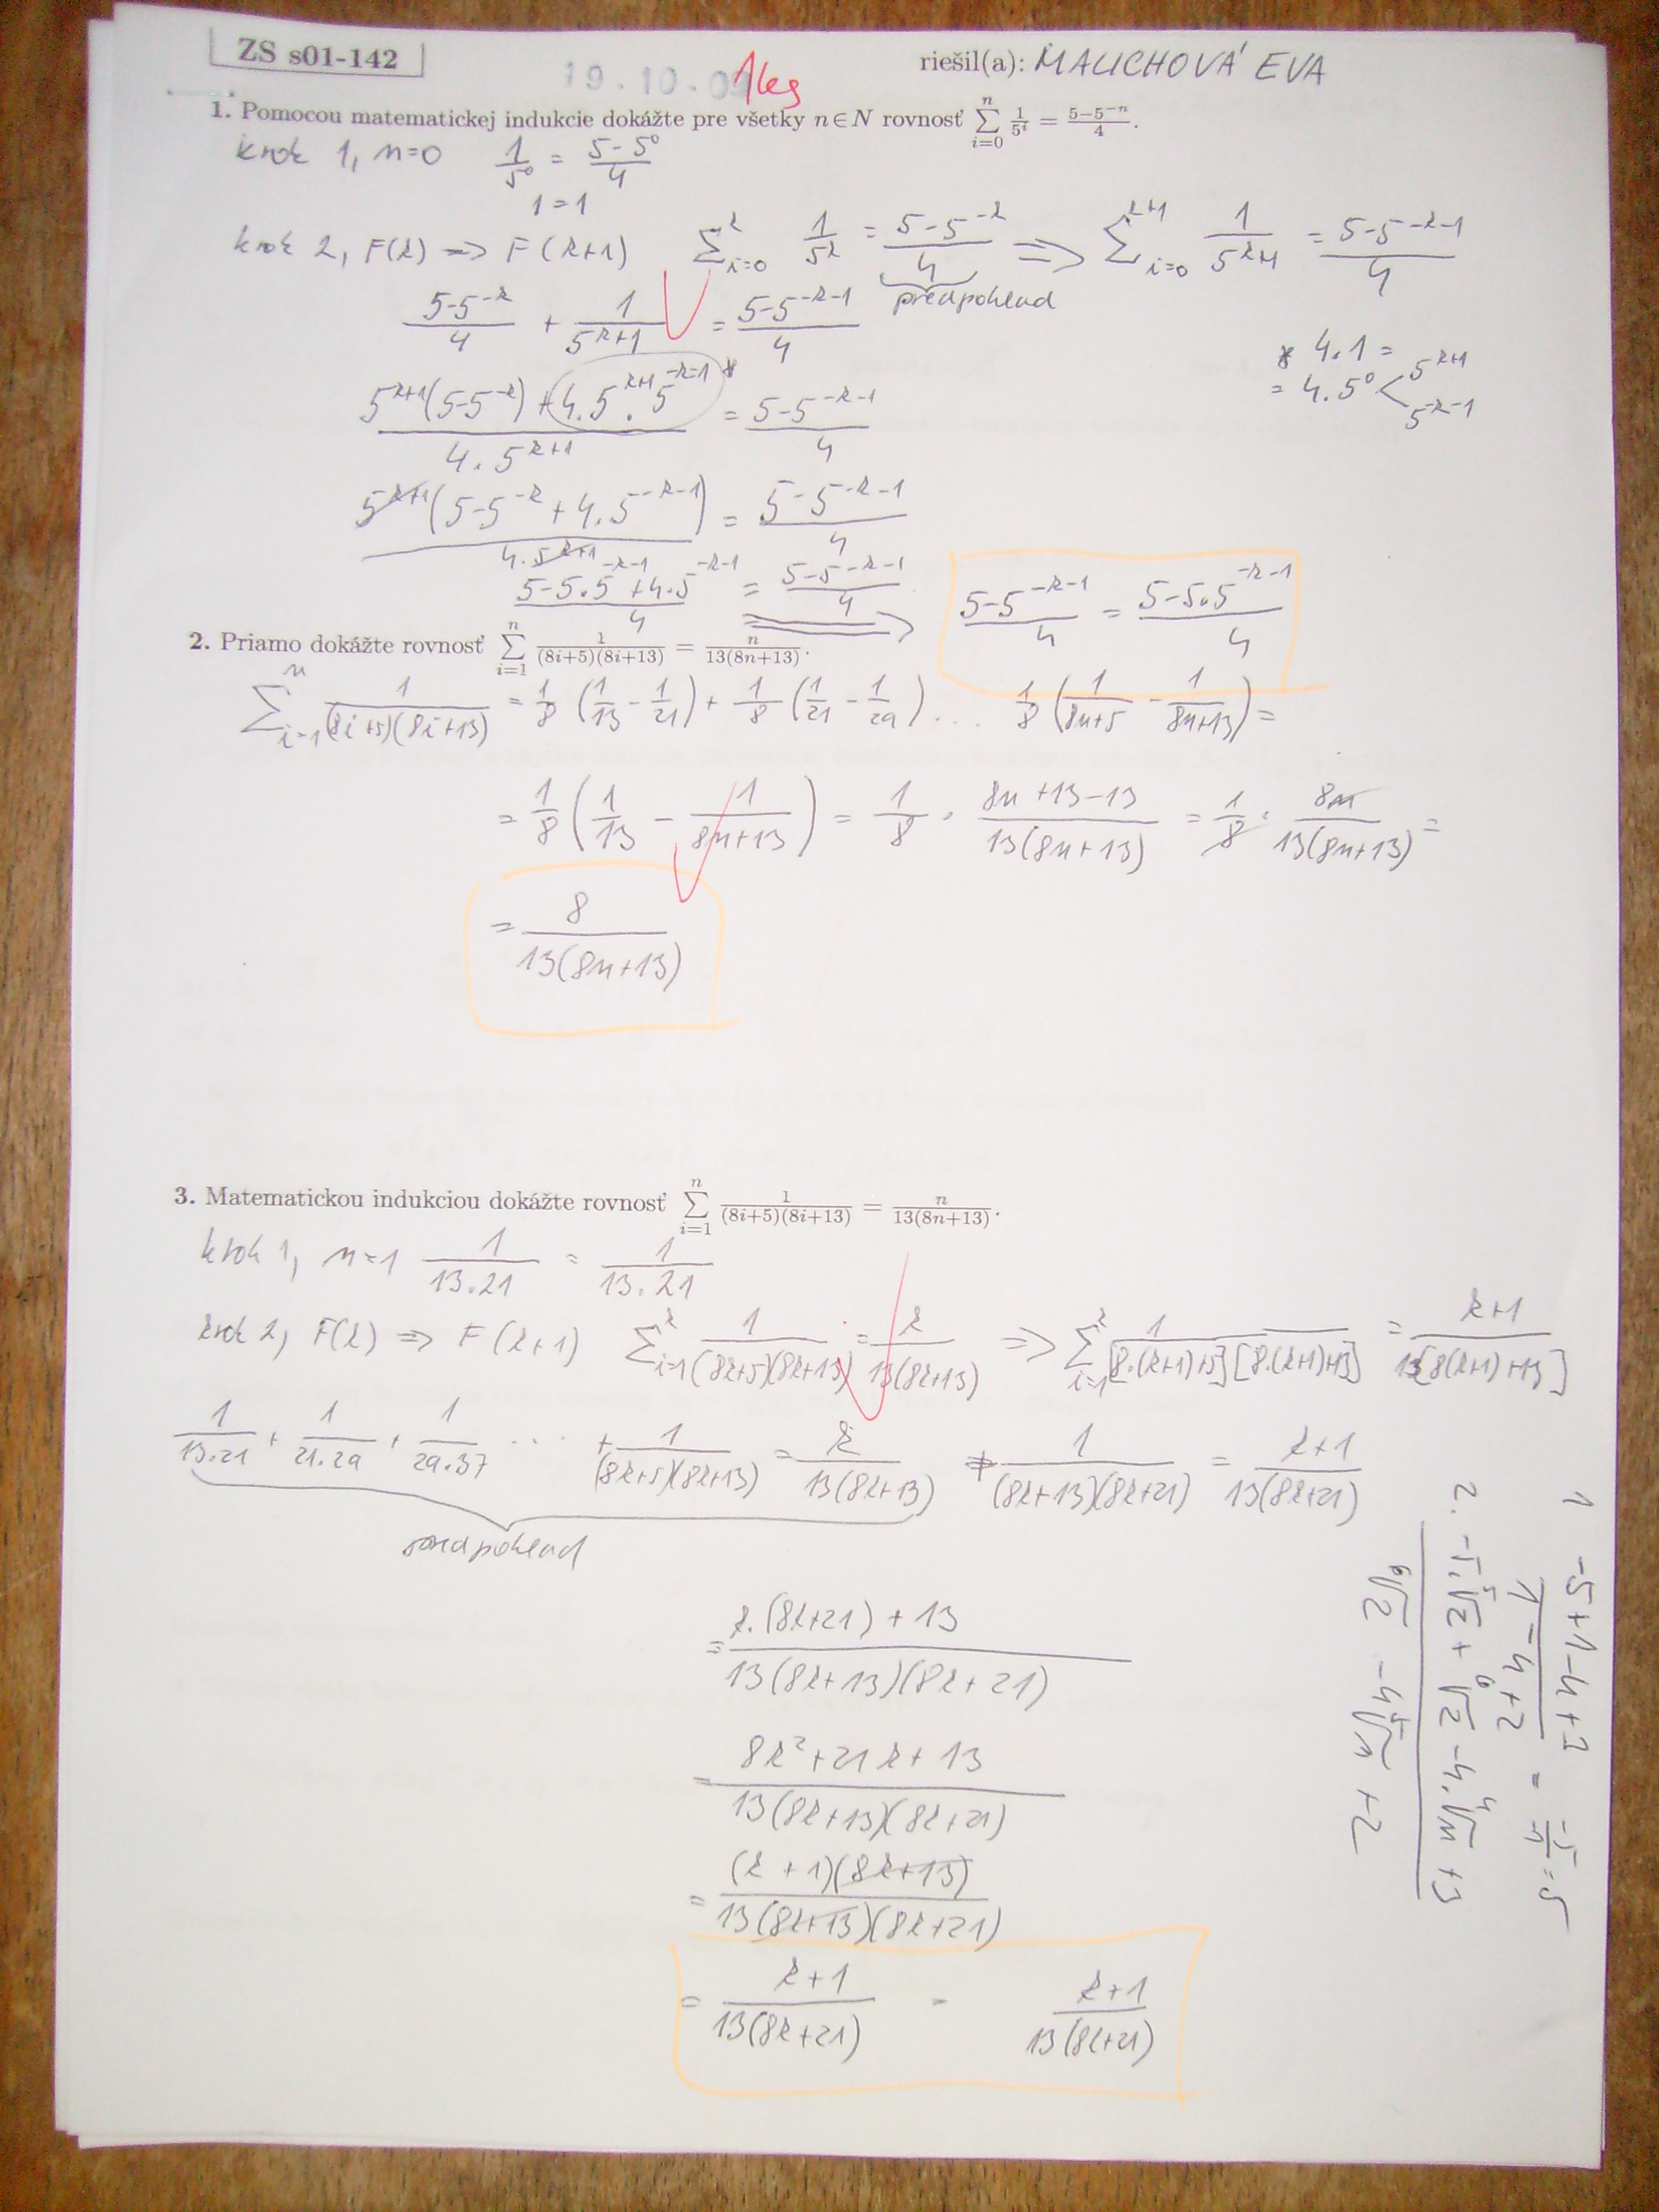 ZS s01-142
riešil(a): MALICHOVÁ EVA
19.10.09
1. Pomocou matematickej indukcie dokážte pre všetky n∈N rovnosť \sum_{i=0}^{n} \frac{1}{5^i} = \frac{5-5^{-n}}{4}.
krok 1, n=0 \frac{1}{5^0} = \frac{5-5^0}{4}
1=1
krok 2, F(k) => F(k+1) \sum_{i=0}^{k} \frac{1}{5^k} = \frac{5-5^{-k}}{4} => \sum_{i=0}^{k+1} \frac{1}{5^{k+1}} = \frac{5-5^{-k-1}}{4}
predpoklad
\frac{5-5^{-k}}{4} + \frac{1}{5^{k+1}} = \frac{5-5^{-k-1}}{4}
* 4.1 =
= 4.5^0 < 5^{k+1} 5^{-k-1}
\frac{5^{k+1}(5-5^{-k})+4.5^{k+1}.5^{-k-1}}{4.5^{k+1}} * = \frac{5-5^{-k-1}}{4}
\frac{5^{k+1}(5-5^{-k}+4.5^{-k-1})}{4.5^{k+1}} = \frac{5-5^{-k-1}}{4}
\frac{5-5.5^{-k-1}+4.5^{-k-1}}{4} = \frac{5-5^{-k-1}}{4} => \frac{5-5^{-k-1}}{4} = \frac{5-5.5^{-k-1}}{4}
2. Priamo dokážte rovnosť \sum_{i=1}^{n} \frac{1}{(8i+5)(8i+13)} = \frac{n}{13(8n+13)}.
\sum_{i=1}^{n} \frac{1}{(8i+5)(8i+13)} = \frac{1}{8}(\frac{1}{13} - \frac{1}{21}) + \frac{1}{8}(\frac{1}{21} - \frac{1}{29}) ... \frac{1}{8}(\frac{1}{8n+5} - \frac{1}{8n+13}) =
= \frac{1}{8}(\frac{1}{13} - \frac{1}{8n+13}) = \frac{1}{8} . \frac{8n+13-13}{13(8n+13)} = \frac{1}{8} . \frac{8n}{13(8n+13)} =
= \frac{8}{13(8n+13)}
3. Matematickou indukciou dokážte rovnosť \sum_{i=1}^{n} \frac{1}{(8i+5)(8i+13)} = \frac{n}{13(8n+13)}.
krok 1, n=1 \frac{1}{13.21} = \frac{1}{13.21}
krok 2, F(k) => F(k+1) \sum_{i=1}^{k} \frac{1}{(8k+5)(8k+13)} = \frac{k}{13(8k+13)} => \sum_{i=1}^{k} \frac{1}{[8.(k+1)+5][8.(k+1)+13]} = \frac{k+1}{13[8(k+1)+13]}
\frac{1}{13.21} + \frac{1}{21.29} + \frac{1}{29.37} ... + \frac{1}{(8k+5)(8k+13)} = \frac{k}{13(8k+13)} + \frac{1}{(8k+13)(8k+21)} = \frac{k+1}{13(8k+21)}
predpoklad
= \frac{k.(8k+21)+13}{13(8k+13)(8k+21)}
= \frac{8k^2+21k+13}{13(8k+13)(8k+21)}
= \frac{(k+1)(8k+13)}{13(8k+13)(8k+21)}
= \frac{k+1}{13(8k+21)} = \frac{k+1}{13(8k+21)}
1 \frac{-5+1-4+3}{1-4+2} = \frac{-5}{-1} = 5